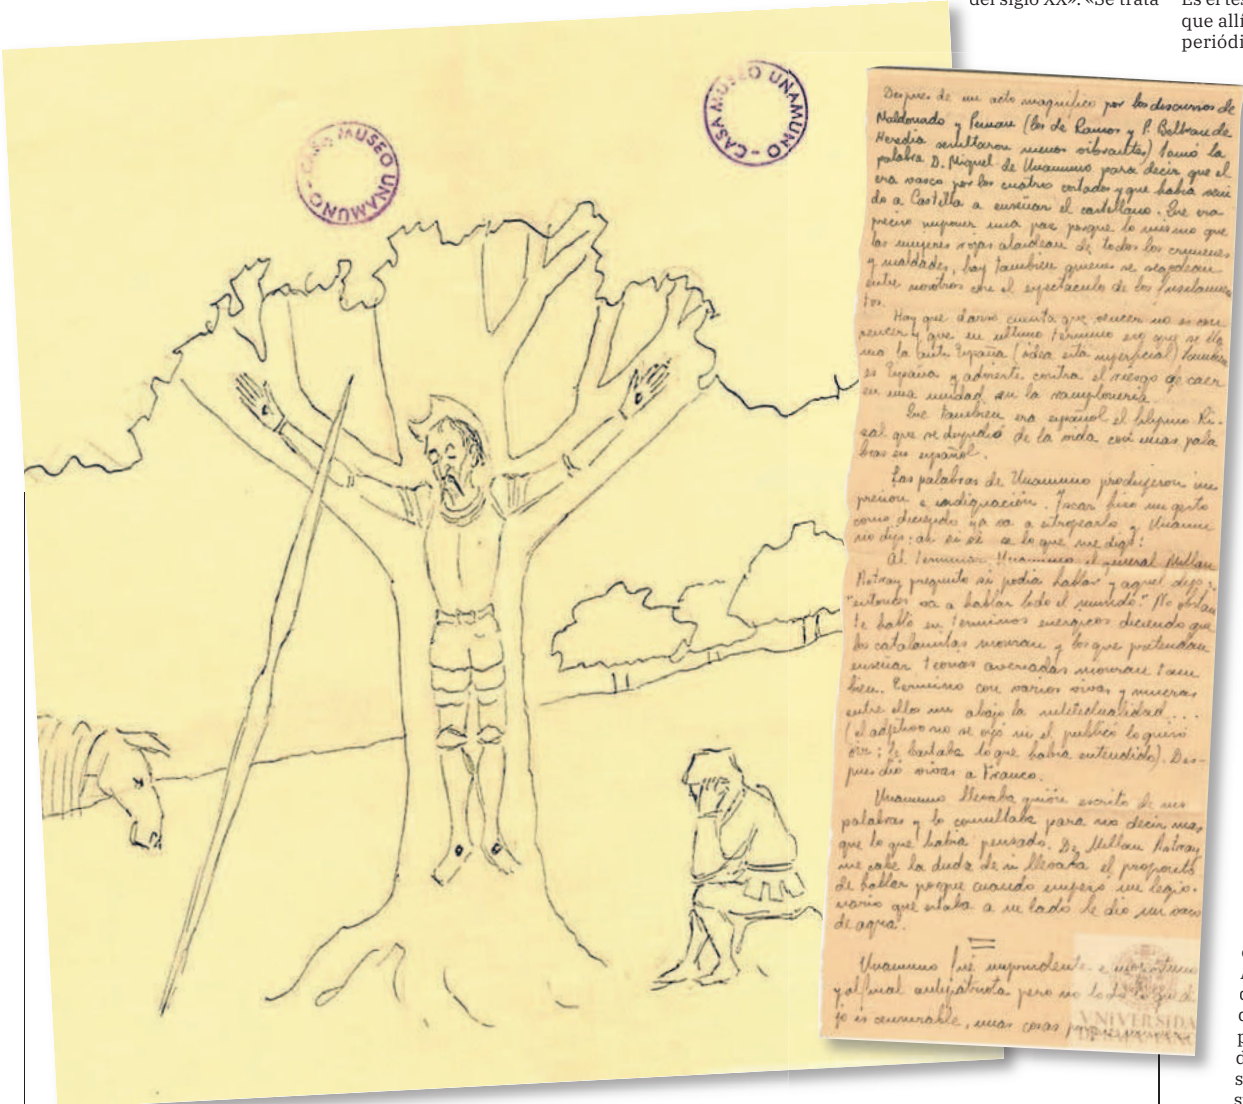 del siglo XX». «Se trata
que allí
periódi
CASA MUSEO UNAMUNO -
CASA MUSEO UNAMUNO -
Despues de un acto magnifico por los discursos de
Maldonado y Peman (los de Ramos y P. Beltran de
Heredia resultaron menos vibrantes) tomó la
palabra D. Miguel de Unamuno para decir que el
era vasco por los cuatro costados y que habia veni
do a Castilla a enseñar el castellano. Que era
preciso imponer una paz porque lo mismo que
las mujeres rojas alardean de todos los crimenes
y maldades, hay tambien quienes se regodean
entre nosotros con el espectaculo de los fusilamien
tos.
Hay que darse cuenta que vencer no es con
vencer y que en ultimo termino eso que se lla
ma la anti España (idea esta superficial) tambien
es España y advierte contra el riesgo de caer
en una unidad en la ramploneria.
Que tambien era español el filipino Ri-
zal que se despidió de la vida con unas pala
bras en español.
Las palabras de Unamuno produjeron im
presion e indignación. hizo un gesto
como diciendo ya va a estropearlo y Unamu
no dijo: ah si si se lo que me digo!
Al terminar Unamuno el general Millan
Astray pregunto si podia hablar y aquel dijo:
"entonces va a hablar todo el mundo." No obstan
te habló en terminos energicos diciendo que
los catalanistas moriran y los que pretendan
enseñar teorias averiadas moriran tam
bien. Termino con varios vivas y mueras
entre ellos un abajo la intelectualidad....
(el adjetivo no se oyó ni el publico lo quiso
oir; le bastaba lo que habia entendido). Des-
pues dió vivas a Franco.
Unamuno llevaba guión escrito de sus
palabras y lo consultaba para no decir mas
que lo que habia pensado. De Millan Astray
me cabe la duda de si llevaba el proposito
de hablar porque cuando empezó un legio-
nario que estaba a su lado le dio un vaso
de agua.
Unamuno fué imprudente e
y al final antipatriota pero no todo lo que di
jo es censurable, unas cosas
VNIVERSIDA